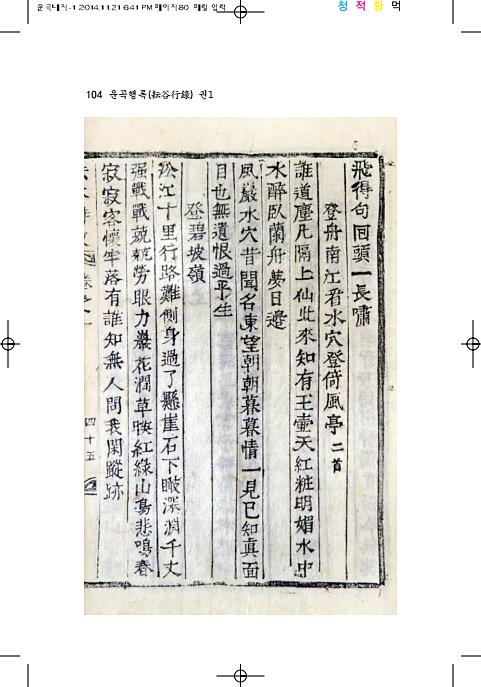 운곡대지-1 2014.11.21 6:41 PM 페이지80 매킬 입력
청 적 황 먹
104 운곡행록(耘谷行錄) 권1
飛得句回頭一長嘯
登舟南江看水穴登倚風亭 二首
誰道塵凡隔上仙此來知有玉壷天紅粧明媚水中
水醉臥蘭舟夢日邊
風巖水穴昔聞名東望朝朝暮暮情一見已知眞面
目也無遺恨過平生
登碧坡嶺
江十里行路難側身過了懸崖石下瞰深淵千丈
强戰戰兢兢勞眼力巖花澗草暎紅綠山鳥悲鳴春
寂寂客懷牢落有誰知無人問我閑蹤跡
四十五